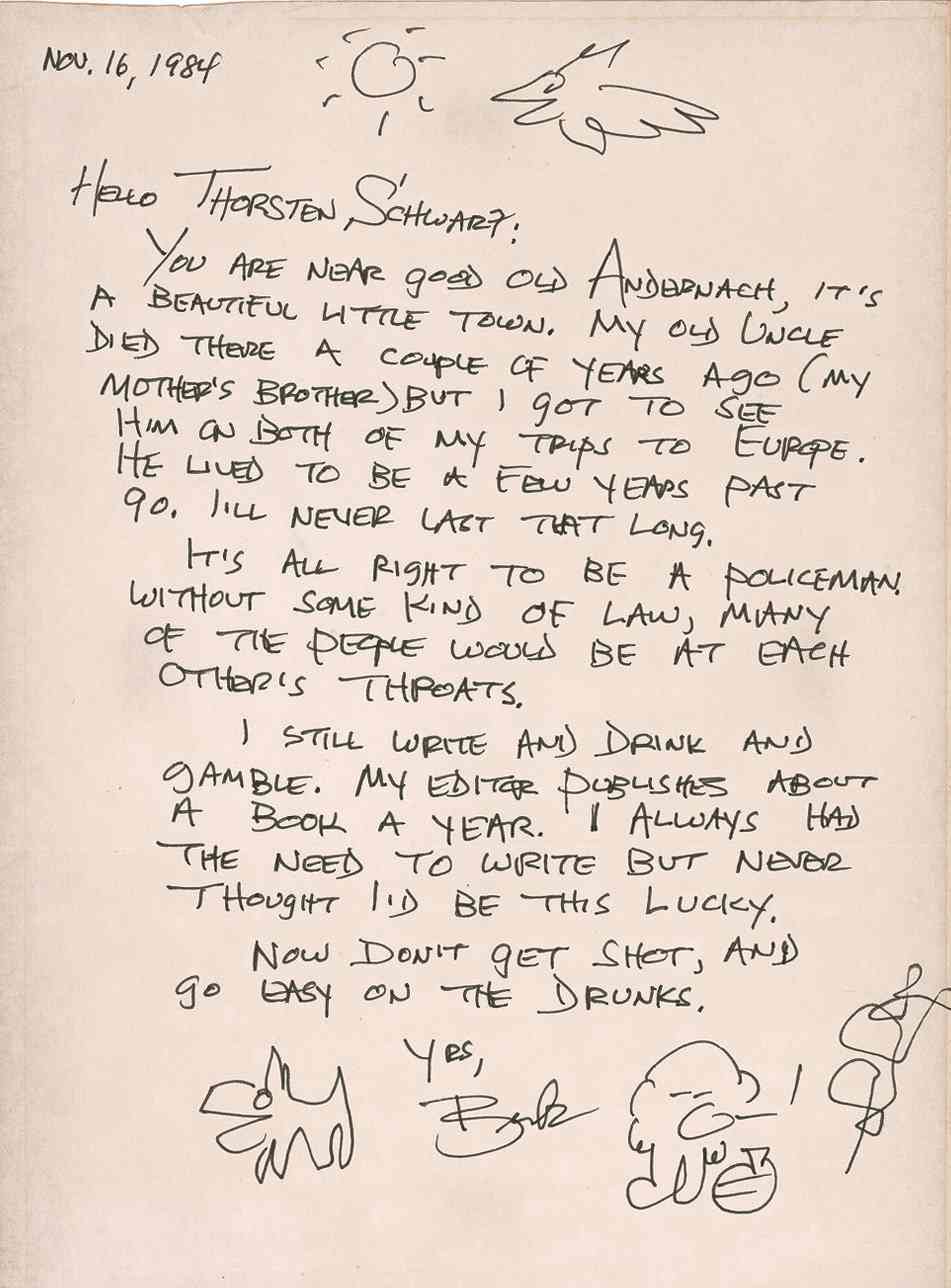 NOV. 16, 1984
HELLO THORSTEN SCHWARZ:
YOU ARE NEAR GOOD OLD ANDERNACH, IT'S
A BEAUTIFUL LITTLE TOWN. MY OLD UNCLE
DIED THERE A COUPLE OF YEARS AGO (MY
MOTHER'S BROTHER) BUT I GOT TO SEE
HIM ON BOTH OF MY TRIPS TO EUROPE.
HE LIVED TO BE A FEW YEARS PAST
90. I'LL NEVER LAST THAT LONG.
IT'S ALL RIGHT TO BE A POLICEMAN.
WITHOUT SOME KIND OF LAW, MANY
OF THE PEOPLE WOULD BE AT EACH
OTHER'S THROATS.
I STILL WRITE AND DRINK AND
GAMBLE. MY EDITOR PUBLISHES ABOUT
A BOOK A YEAR. I ALLWAYS HAD
THE NEED TO WRITE BUT NEVER
THOUGHT I'D BE THIS LUCKY.
NOW DON'T GET SHOT, AND
GO EASY ON THE DRUNKS.
YES,
Buk